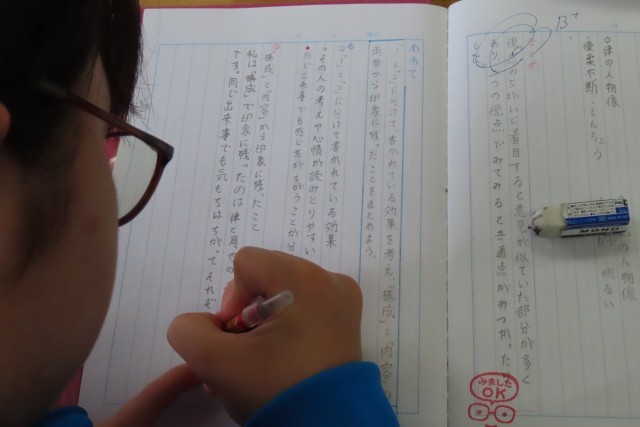 B+
◎律の人物像
優柔不断、しんちょう
の人物像
明るい
視点のちがいに着目すると意見が似ていた部分が多く
二つの視点でみてみると共通点がみつかった
した。
みました
OK
MONO
めあて
「1」と「2」に分けて書かれている効果を考え、「構成」と内容の
両面から印象に残ったことをまとめよう。
◎「1」と「2」に分けて書かれている効果
・その人の考えや心情が読みとりやすい
・同じ出来事でも感じ方がちがうことが分
「構成」と「内容」から印象に残ったこと
私は「構成」で印象に残ったのは律と周也の
です。同じ出来事でも気もちはちがってそれぞ